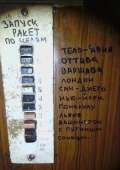 ЗАПУСК
РАКЕТ
ПО ЦЕЛЯМ
ТЕЛЬ-АВИВ
ОТТАВА
ВАРШАВА
ЛОНДОН
САН-ДИЕГО
НЬЮ-ЙОРК
ЛЬВОВ
ВАШИНГТОН